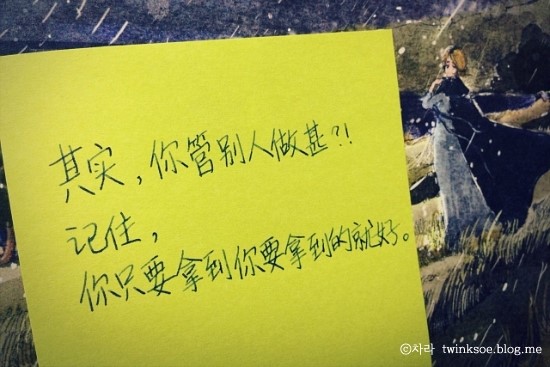 其实，你管别人做甚?!
记住，
你只要拿到你要拿到的就好。
©차라 twinksoe.blog.me